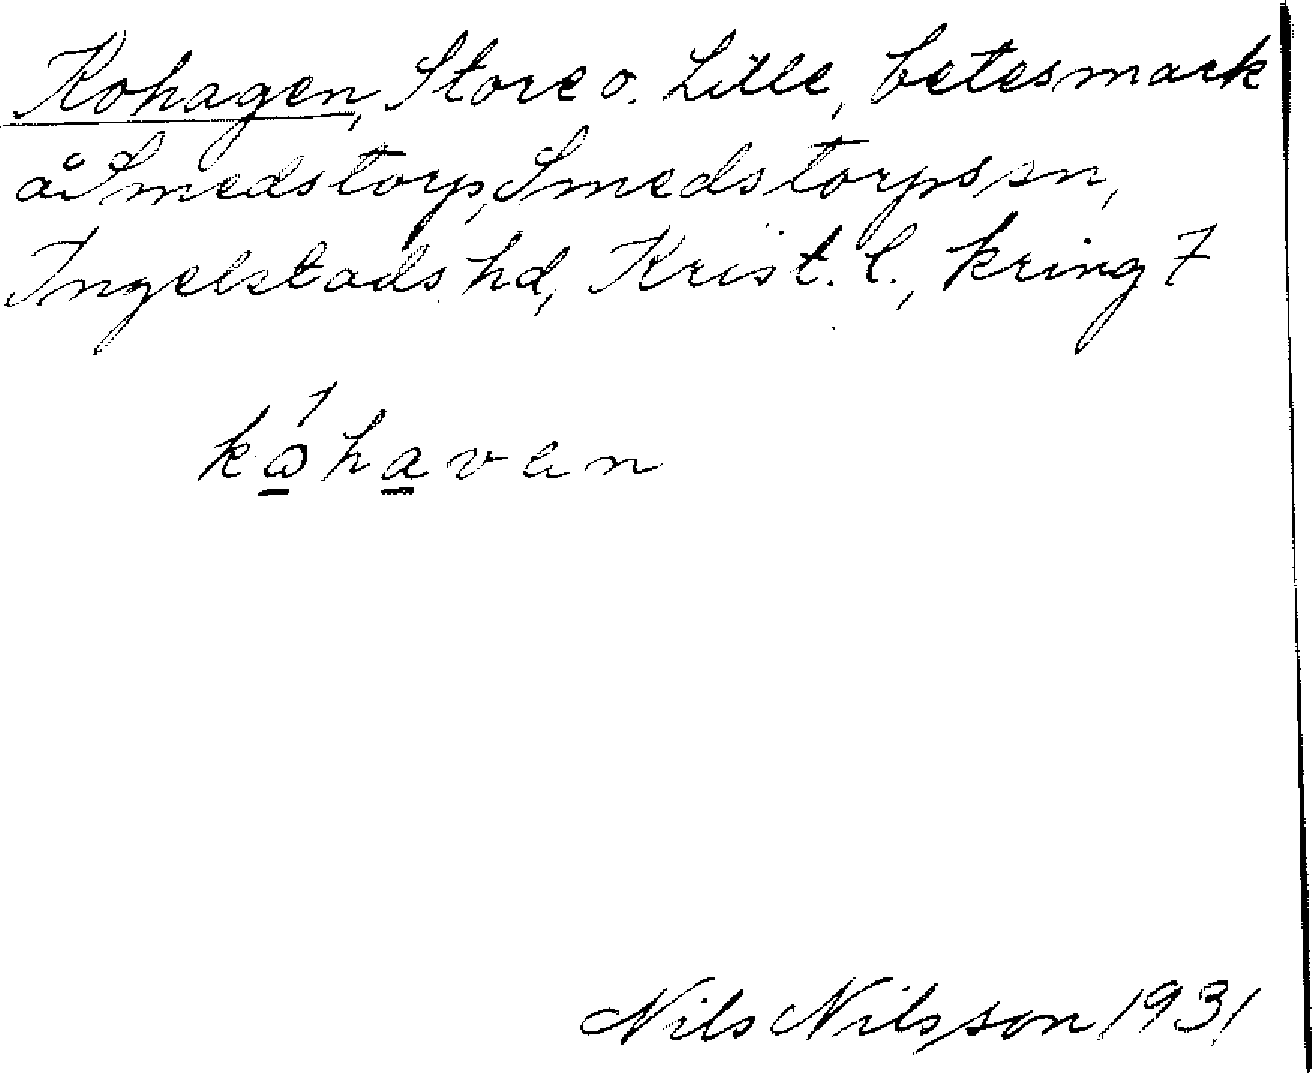 Kohagen, Store o. Lille, betesmark
å Smedstorp, Smedstorps sn,
Ingelstads hd, Krist. l., kring 7
kώ̲ha̲ven
Nils Nilsson 1931